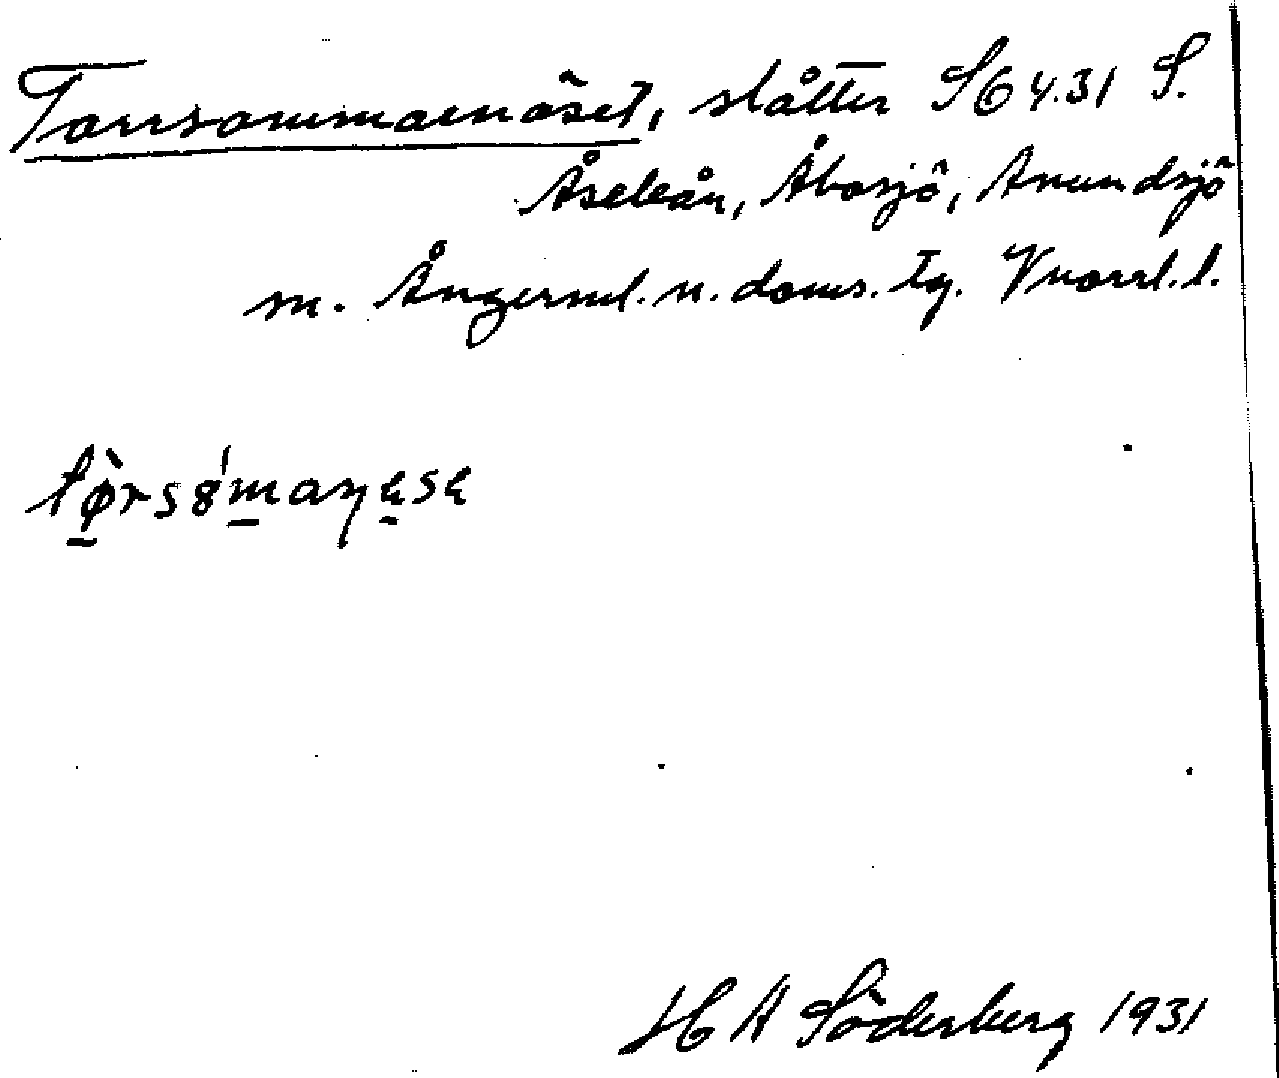 Torrsommarnäset, slåtter S 64.31 S.
Åseleån, Åbosjö, Anundsjö
m. Ångerml. n. doms. tg. Vnorrl. l.
tørsɞmaŋęsę
H A Söderberg 1931